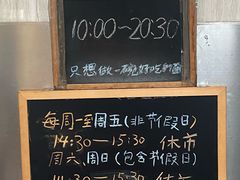 10:00-20:30
只想做一碗好吃的面
每周一至周五(非节假日)
14:30-15:30 休市
周六、周日(包含节假日)